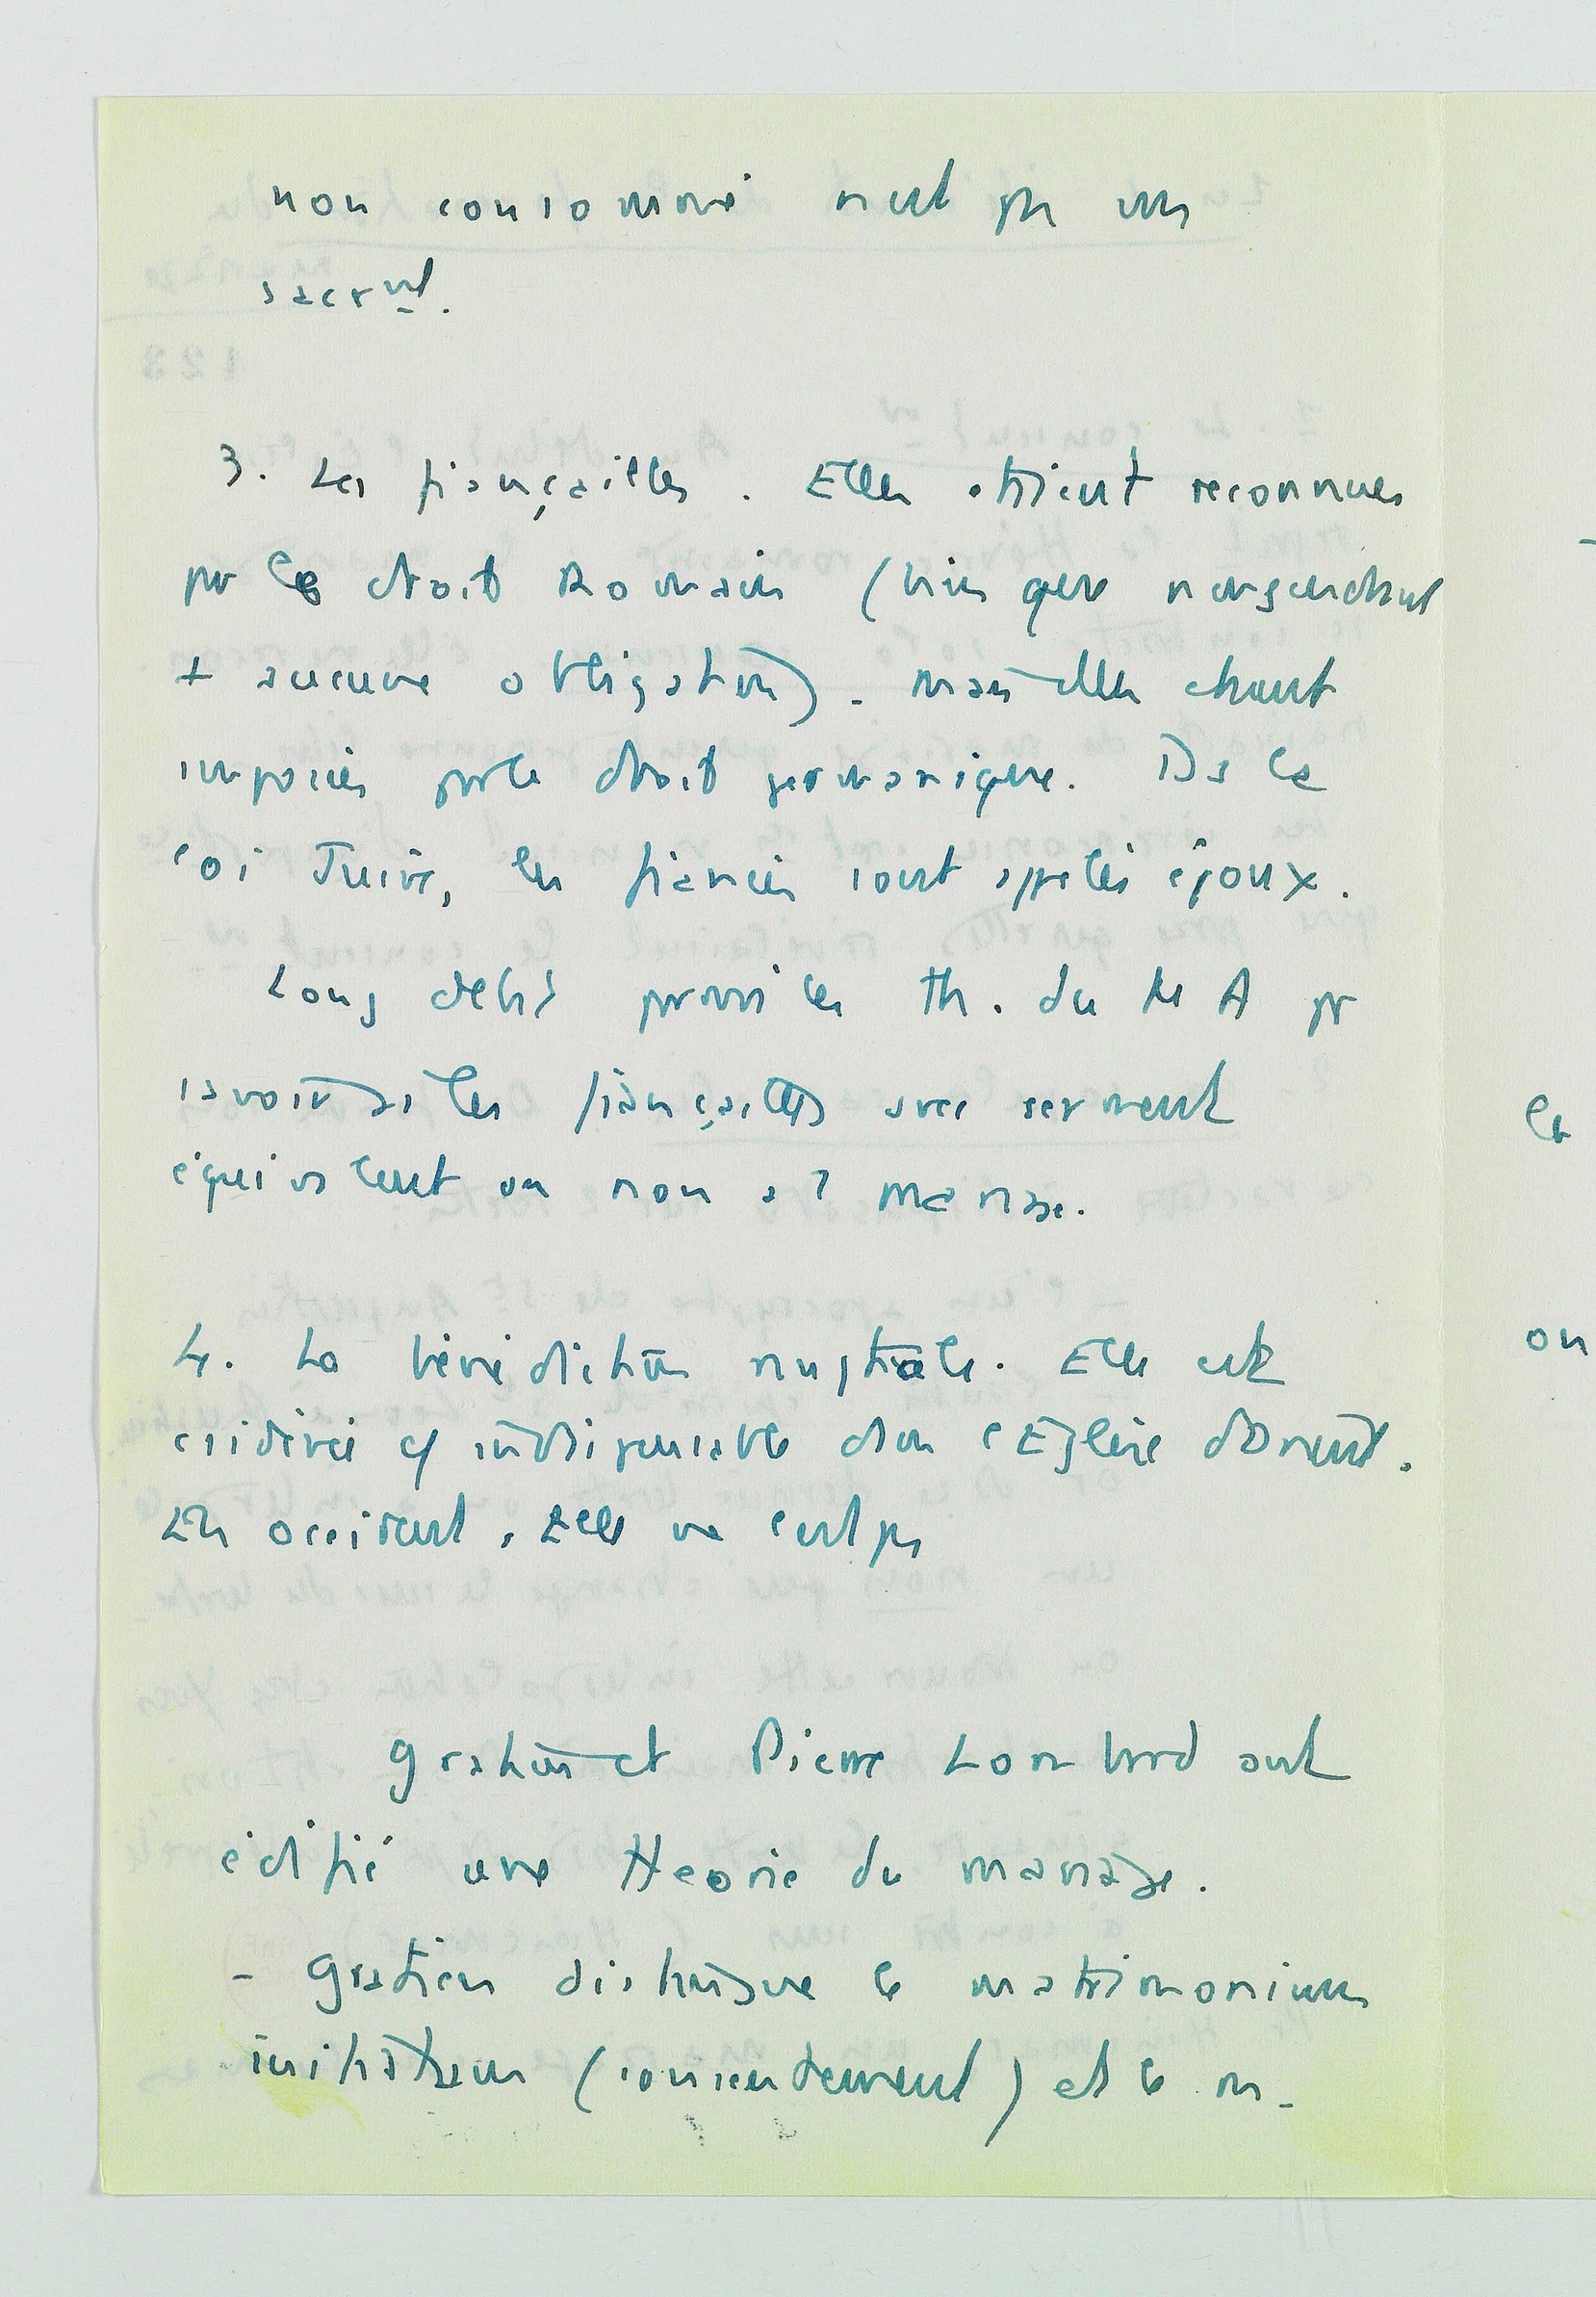 non consommé n'est pas un
sacrnt.
3. Les fiançailles. Elles étaient reconnues
par le droit Romain (bien que n'engendrant
+ aucune obligation). mais elles étaient
imposées par le droit germanique. Ds la
loi Juive, les fiancés sont appelés époux.
Long débat parmi les th. du M A pr
savoir si les fiançailles avec serment
équivalent ou non a? mariage.
4. La bénédiction nuptiale. Elle est
csidérée c/ indispensable dans l'Eglise d'Orient.
En occident, Elle ne l'est pas
Gratien et Pierre Lombard ont
édifié une théorie du mariage.
- Gratien distingue le matrimonium
initiatum (consentement) et le m-
la
on